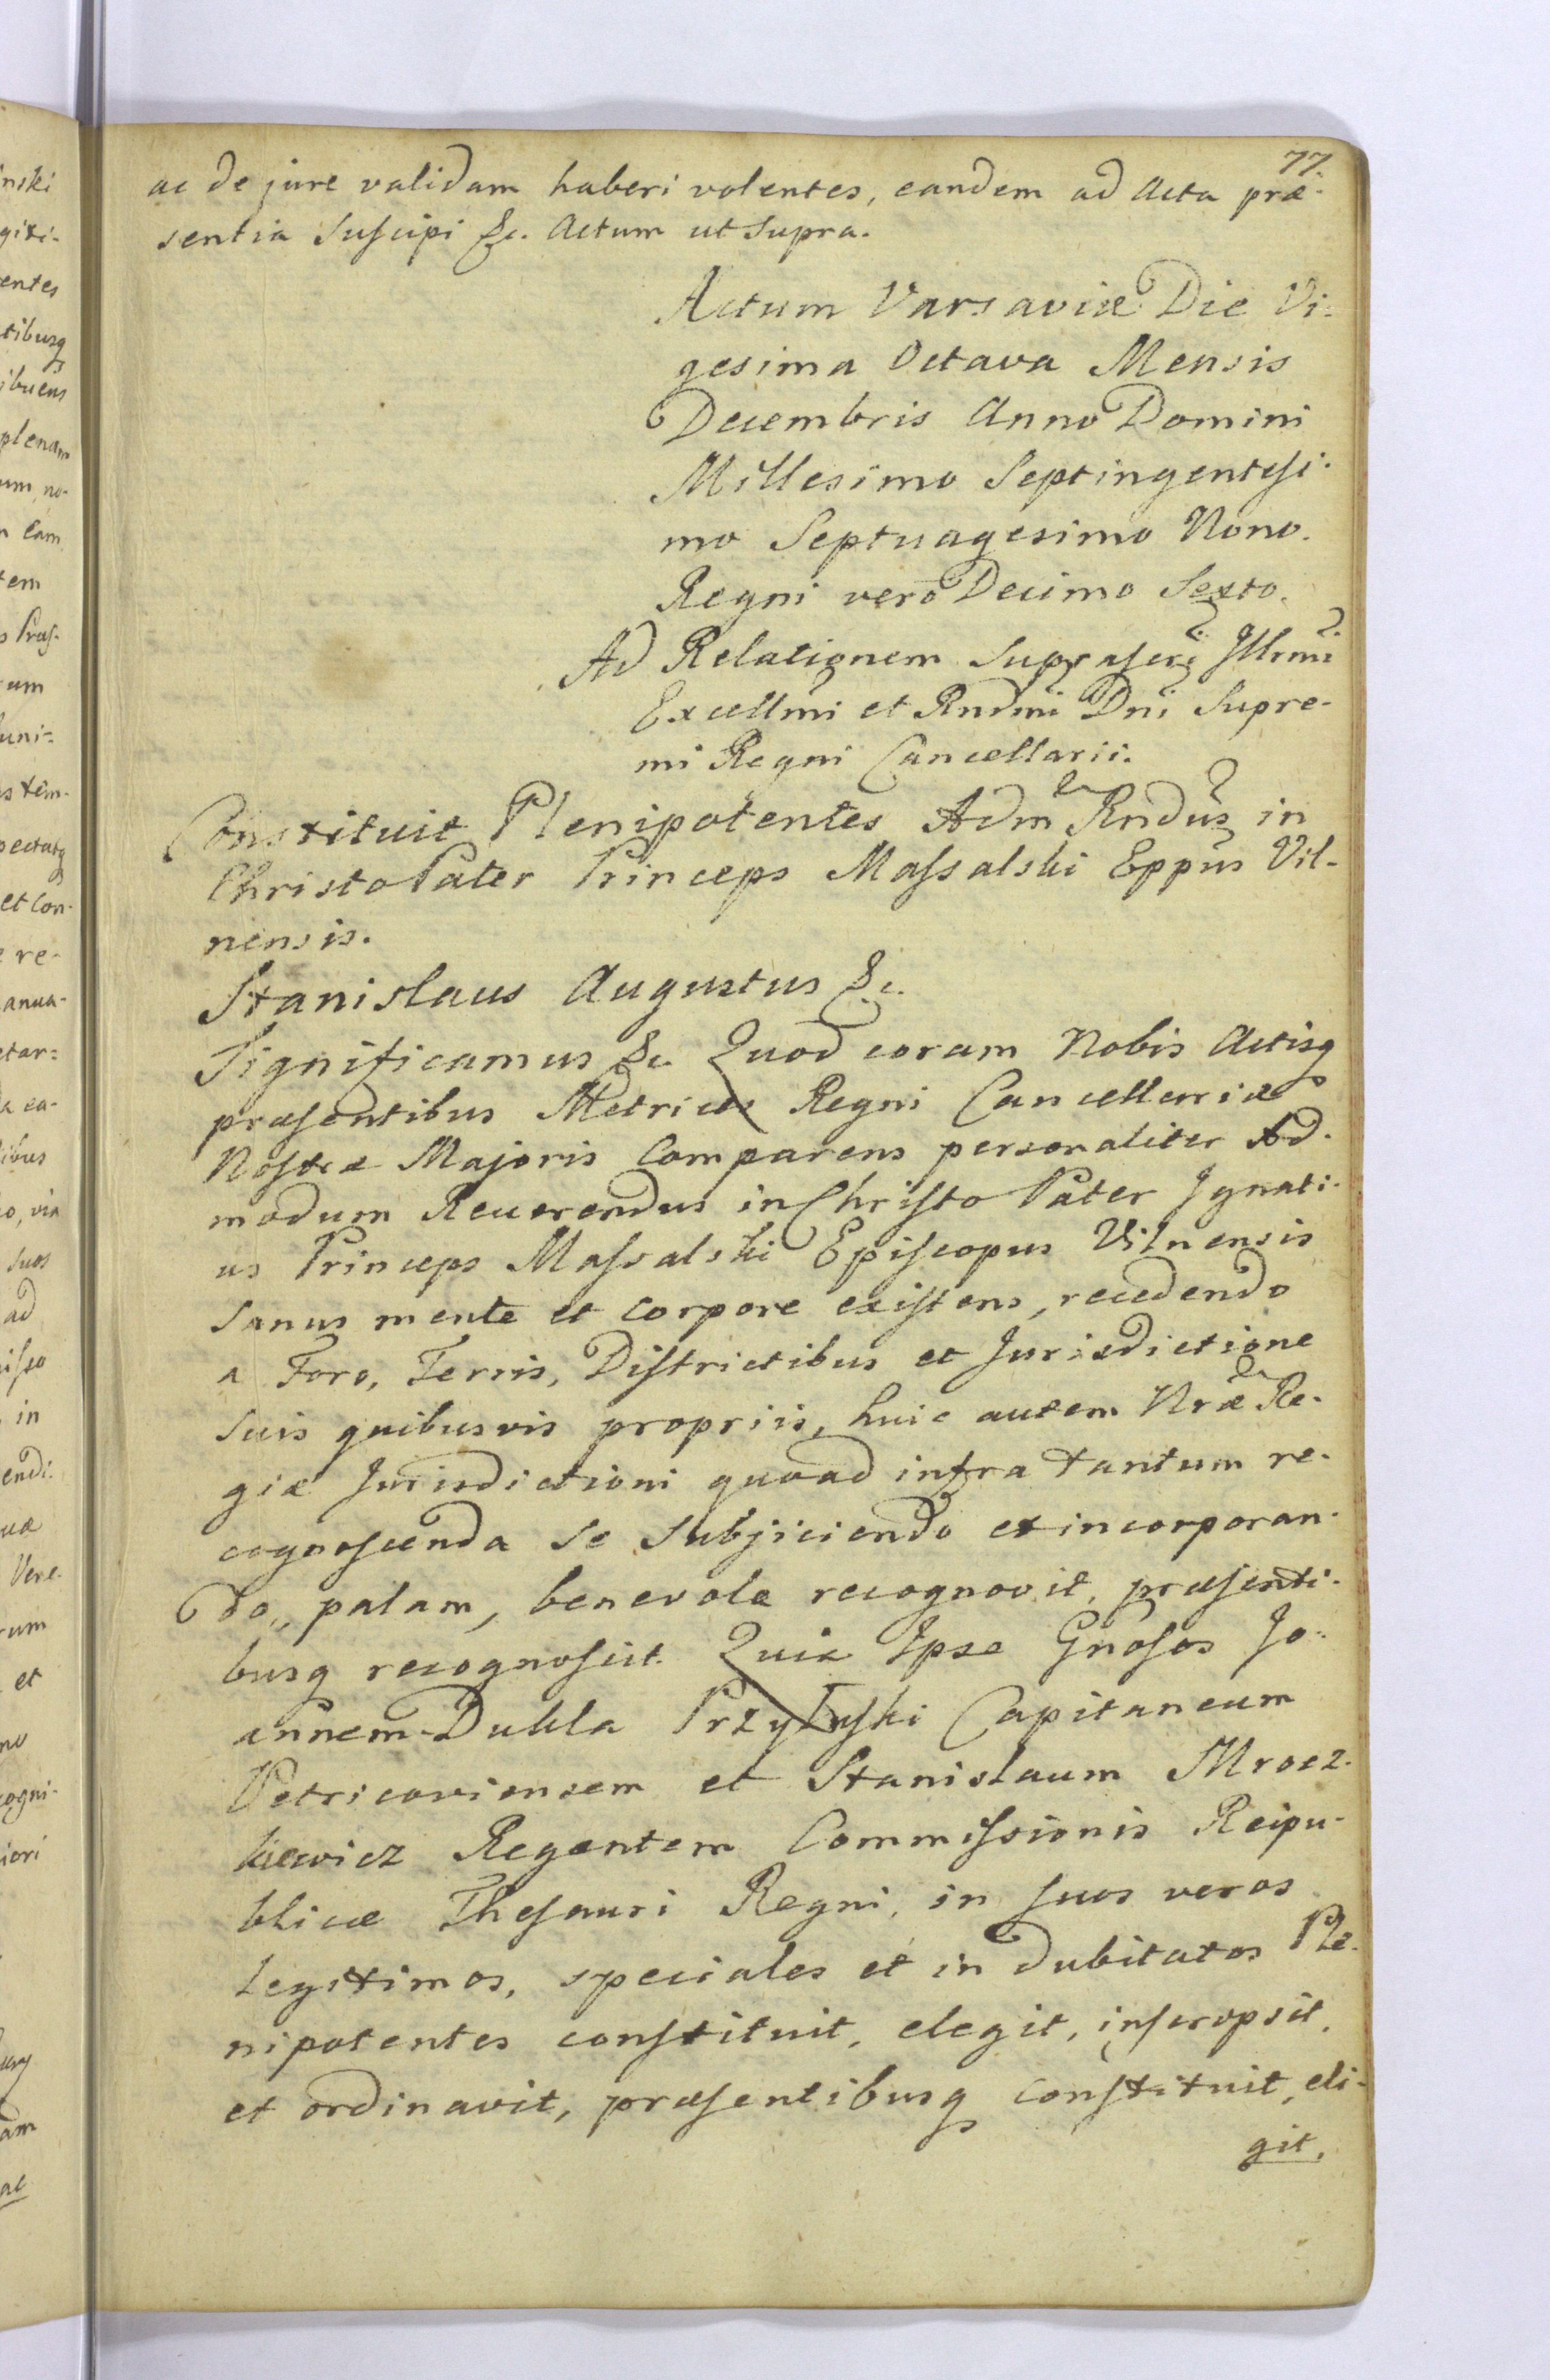 77.
ac de jure validam haberi volentes, eandem ad Acta præ-
sentia Suscipi &c. Actum ut Supra.
Actum Varsaviæ Die Vi-
gesima Octava Mensis
Decembris Anno Domini
Millesimo Septingentesi-
mo Septuagesimo Nono.
Regni vero Decimo Sexto.
Ad Relationem Suprascri Illrmi
Excellmi et Rndmi Dni Supre-
mi Regni Cancellarii.
Constituit Plenipotentes Adm Rndus in
Christo Pater Princeps Massalski Eppus Vil-
nensis.
Stanislaus Augustus &c.
Significamus &c. Quod coram Nobis Actisq
præsentibus Metrices Regni Cancellariæ
Nostræ Majoris Comparens personaliter Ad-
modum Reverendus in Christo Pater Ignati-
us Princeps Massalski Episcopus Vilnensis
Sanus mente et Corpore existens, recedendo
a Foro, Terris, Districtibus et Jurisdictione
Suis quibusvis propriis, huic autem Nræ Re-
giæ Jurisdictioni quoad infra tantum re-
cognoscenda Se Subjiciendo et incorporan-
do, palam, benevole recognovit, præsenti-
busq recognoscit. Quia Ipse Gnosos Jo-
annem Dukla Przyłuski Capitaneum
Petricoviensem et Stanislaum Mrocz-
kiewicz Regentem Commissionis Reipu-
blicæ Thesauri Regni, in suos veros
Legitimos, speciales et in dubitatos Ple-
nipotentes constituit, elegit, inscropsit,
et ordinavit, præsentibusq constituit, eli-
git,
nski
giti-
entes
tibusq
ibuens
plenam
um, no-
Eam
tem
Præs-
um
uni-
tem-
et Con-
re-
anua-
etar-
ea-
ibus
o, via
Suos
ad
in
endi-
Vere-
rum
et
ogni-
iori
am